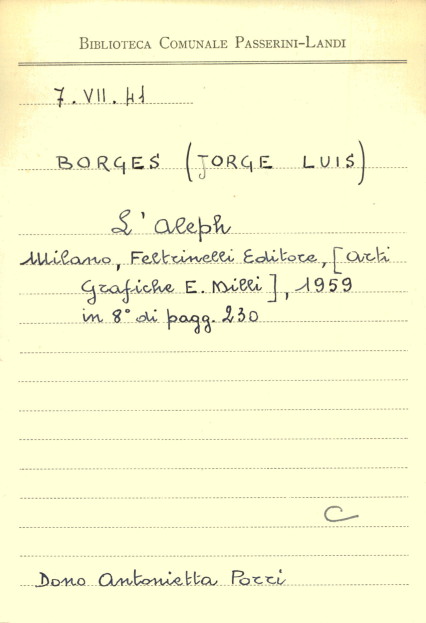 BIBLIOTECA COMUNALE PASSERINI-LANDI
7. VII. 41
BORGES (JORGE LUIS)
L'Aleph
Milano, Feltrinelli Editore, [Arti
Grafiche E. Milli], 1959
in 8° di pagg. 230
C
Dono Antonietta Pozzi